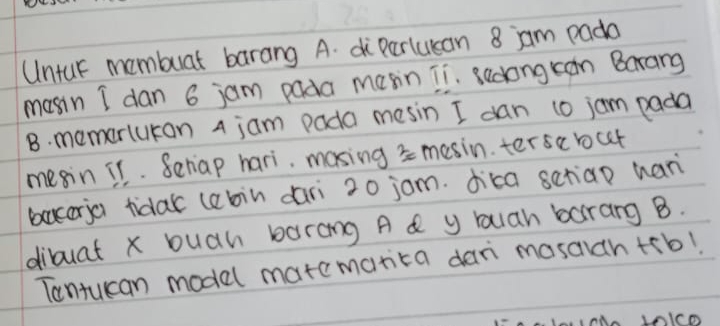 Untuk membuat barang A. diperlukan 8 jam pada
mesin I dan 6 jam pada mesin II. sedangkan Barang
B. memerlukan 4 jam pada mesin I dan 10 jam pada
mesin II. Setiap hari. masing2 mesin. tersebut
bekerja tidak lebih dari 20 jam. jika setiap hari
dibuat x buah barang A & y buah barang B.
Tentukan model matematika dari masalah tsb!